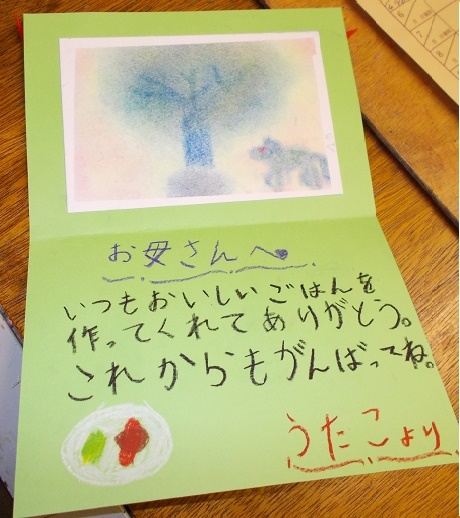 お母さんへ
いつもおいしいごはんを
作ってくれてありがとう。
これからもがんばってね。
うたこより